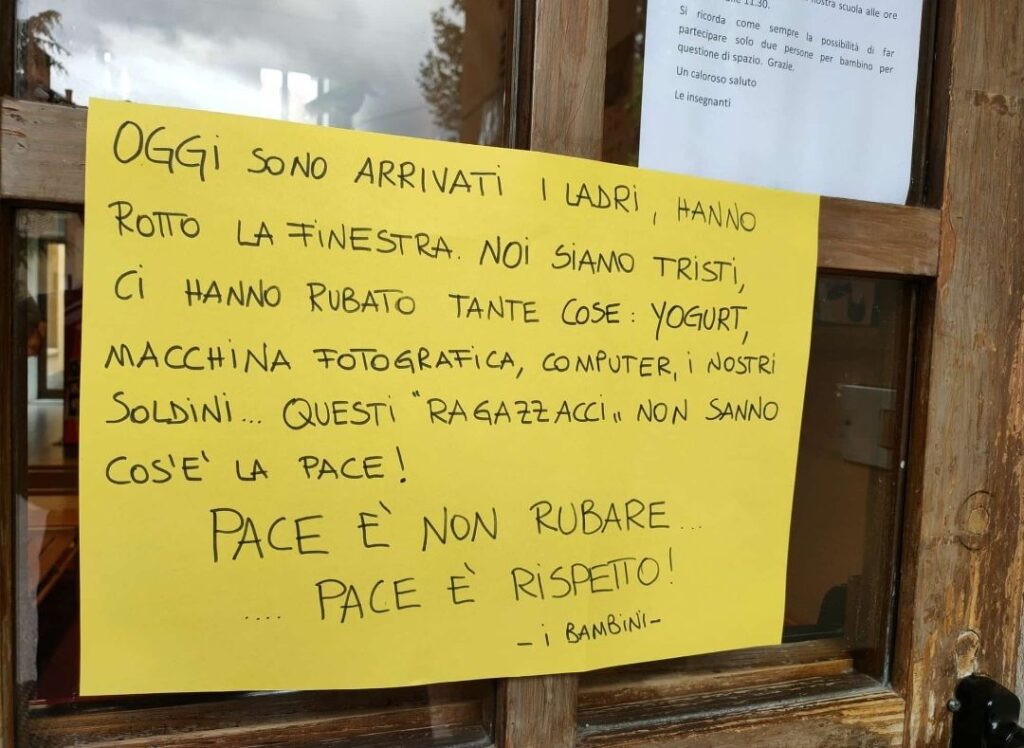 nostra scuola alle ore
11.30.
Si ricorda come sempre la possibilità di far
partecipare solo due persone per bambino per
questione di spazio. Grazie.
Un caloroso saluto
Le insegnanti
OGGI SONO ARRIVATI I LADRI, HANNO
ROTTO LA FINESTRA. NOI SIAMO TRISTI,
CI HANNO RUBATO TANTE COSE: YOGURT,
MACCHINA FOTOGRAFICA, COMPUTER, I NOSTRI
SOLDINI... QUESTI "RAGAZZACCI" NON SANNO
COS'E' LA PACE!
PACE È NON RUBARE...
.... PACE È RISPETTO!
- i BAMBINI -